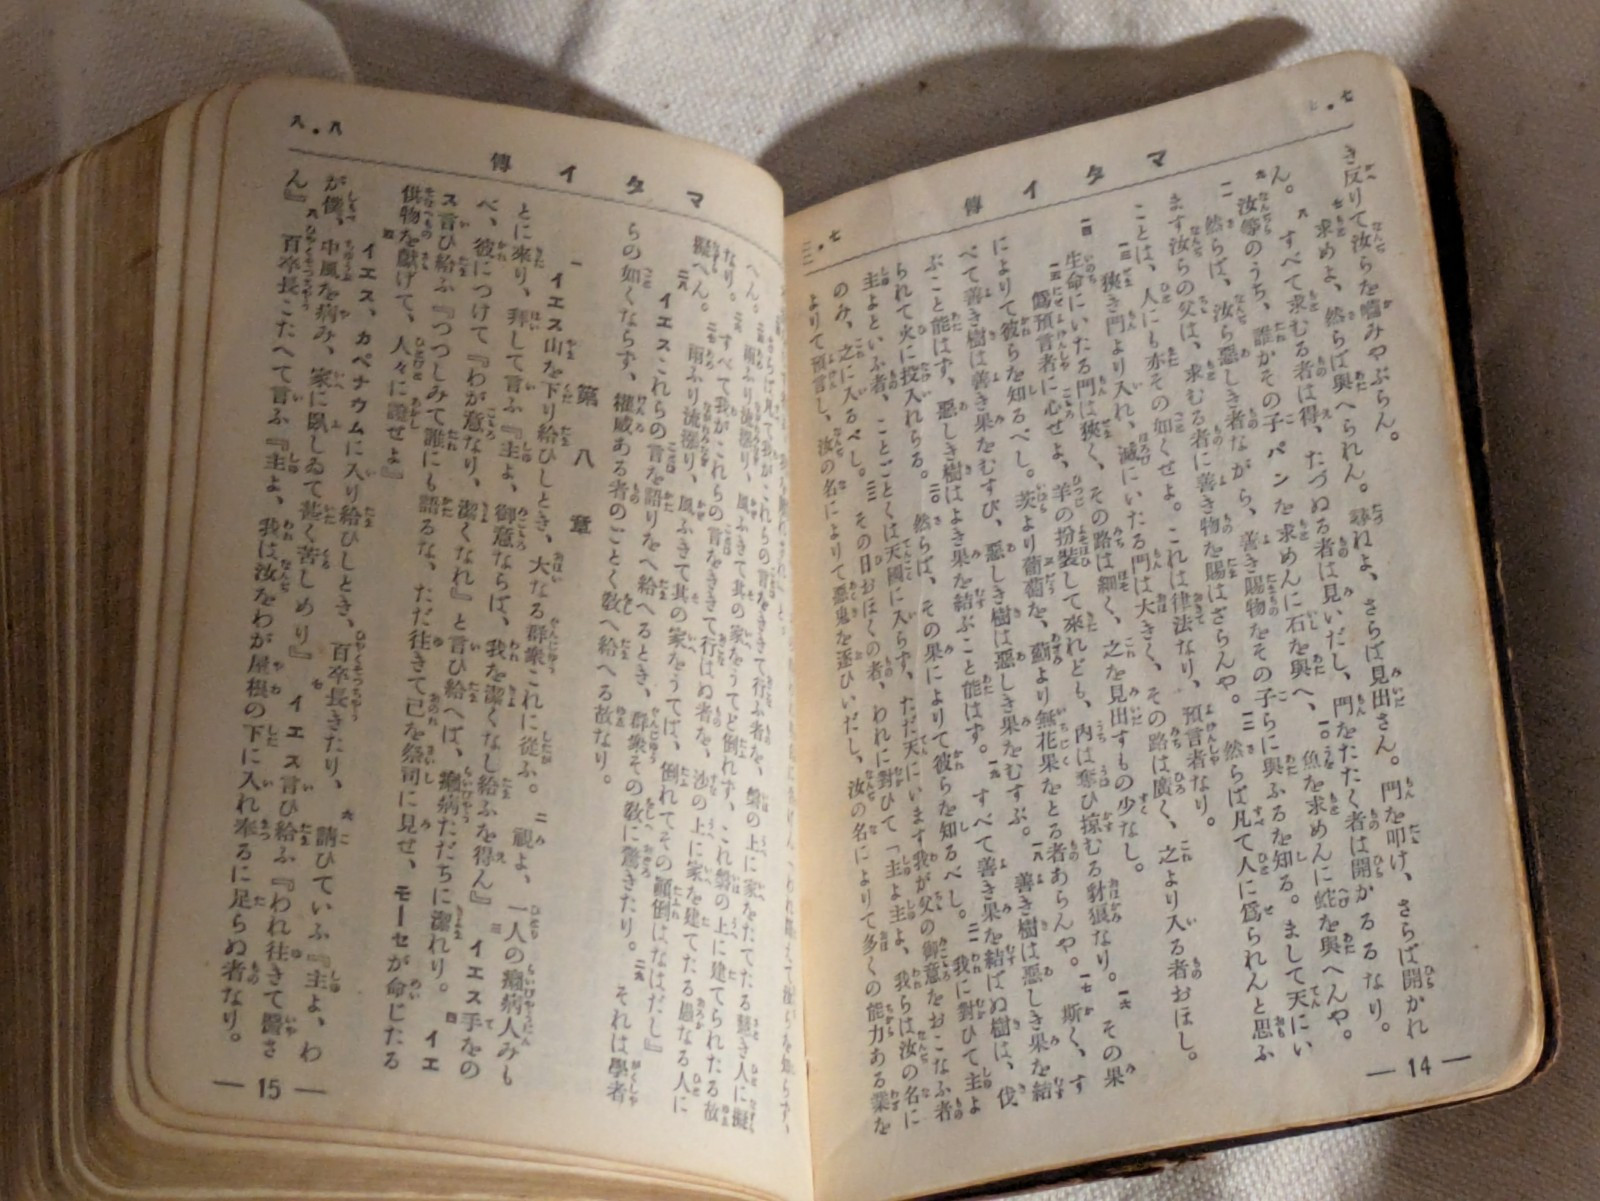 七・七
マタイ傳
き反りて汝らを嚙みやぶらん。
七 求めよ、然らば與へられん。尋ねよ、さらば見出さん。門を叩け、さらば開かれ
ん。八 すべて求むる者は得、たづぬる者は見いだし、門をたたく者は開かるるなり。
九 汝等のうち、誰かその子パンを求めんに石を與へ、一〇 魚を求めんに蛇を與へんや。
一一 然らば、汝ら惡しき者ながら、善き賜物をその子らに與ふるを知る。まして天にい
ます汝らの父は、求むる者に善き物を賜はざらんや。一二 然らば凡て人に爲られんと思ふ
ことは、人にも亦その如くせよ。これは律法なり、預言者なり。
一三 狹き門より入れ、滅にいたる門は大きく、その路は廣く、之より入る者おほし。
一四 生命にいたる門は狹く、その路は細く、之を見出すもの少なし。
一五 僞預言者に心せよ、羊の扮裝して來れども、內は奪ひ掠むる豺狼なり。一六 その果
によりて彼らを知るべし。茨より葡萄を、薊より無花果をとる者あらんや。一七 斯く、す
べて善き樹は善き果をむすび、惡しき樹は惡しき果をむすぶ。一八 善き樹は惡しき果を結
ぶこと能はず、惡しき樹はよき果を結ぶこと能はず。一九 すべて善き果を結ばぬ樹は、伐
られて火に投入れらる。二〇 然らば、その果によりて彼らを知るべし。二一 我に對ひて主よ
主よといふ者、ことごとくは天國に入らず、ただ天にいます我が父の御意をおこなふ者
のみ、之に入るべし。二二 その日おほくの者、われに對ひて「主よ主よ、我らは汝の名に
よりて預言し、汝の名によりて惡鬼を逐ひいだし、汝の名によりて多くの能力ある業を
— 14 —
マタイ傳
八・八
我がこれらの言をききて行ふ者を、磐の上に家をたてたる慧き人に擬
へん。二五 雨ふり流漲り、風ふきて其の家をうてど倒れず、これ磐の上に建てられたる故
なり。二六 すべて我がこれらの言をききて行はぬ者を、沙の上に家を建てたる愚なる人に
擬へん。二七 雨ふり流漲り、風ふきて其の家をうてば、倒れてその顚倒はなはだし』
二八 イエスこれらの言を語りをへ給へるとき、群衆その敎に驚きたり。二九 それは學者
らの如くならず、權威ある者のごとく敎へ給へる故なり。
第八章
一 イエス山を下り給ひしとき、大なる群衆これに從ふ。二 視よ、一人の癩病人みも
とに來り、拜して言ふ『主よ、御意ならば、我を潔くなし給ふを得ん』三 イエス手をの
べ、彼につけて『わが意なり、潔くなれ』と言ひ給へば、癩病ただちに潔れり。四 イエ
ス言ひ給ふ『つつしみて誰にも語るな、ただ往きて己を祭司に見せ、モーセが命じたる
供物を獻げて、人々に證せよ』
五 イエス、カペナウムに入り給ひしとき、百卒長きたり、六 請ひていふ『主よ、わ
が僕、中風を病み、家に臥しゐて甚く苦しめり』七 イエス言ひ給ふ『われ往きて醫さ
ん』八 百卒長こたへて言ふ『主よ、我は汝をわが屋根の下に入れ奉るに足らぬ者なり。
— 15 —